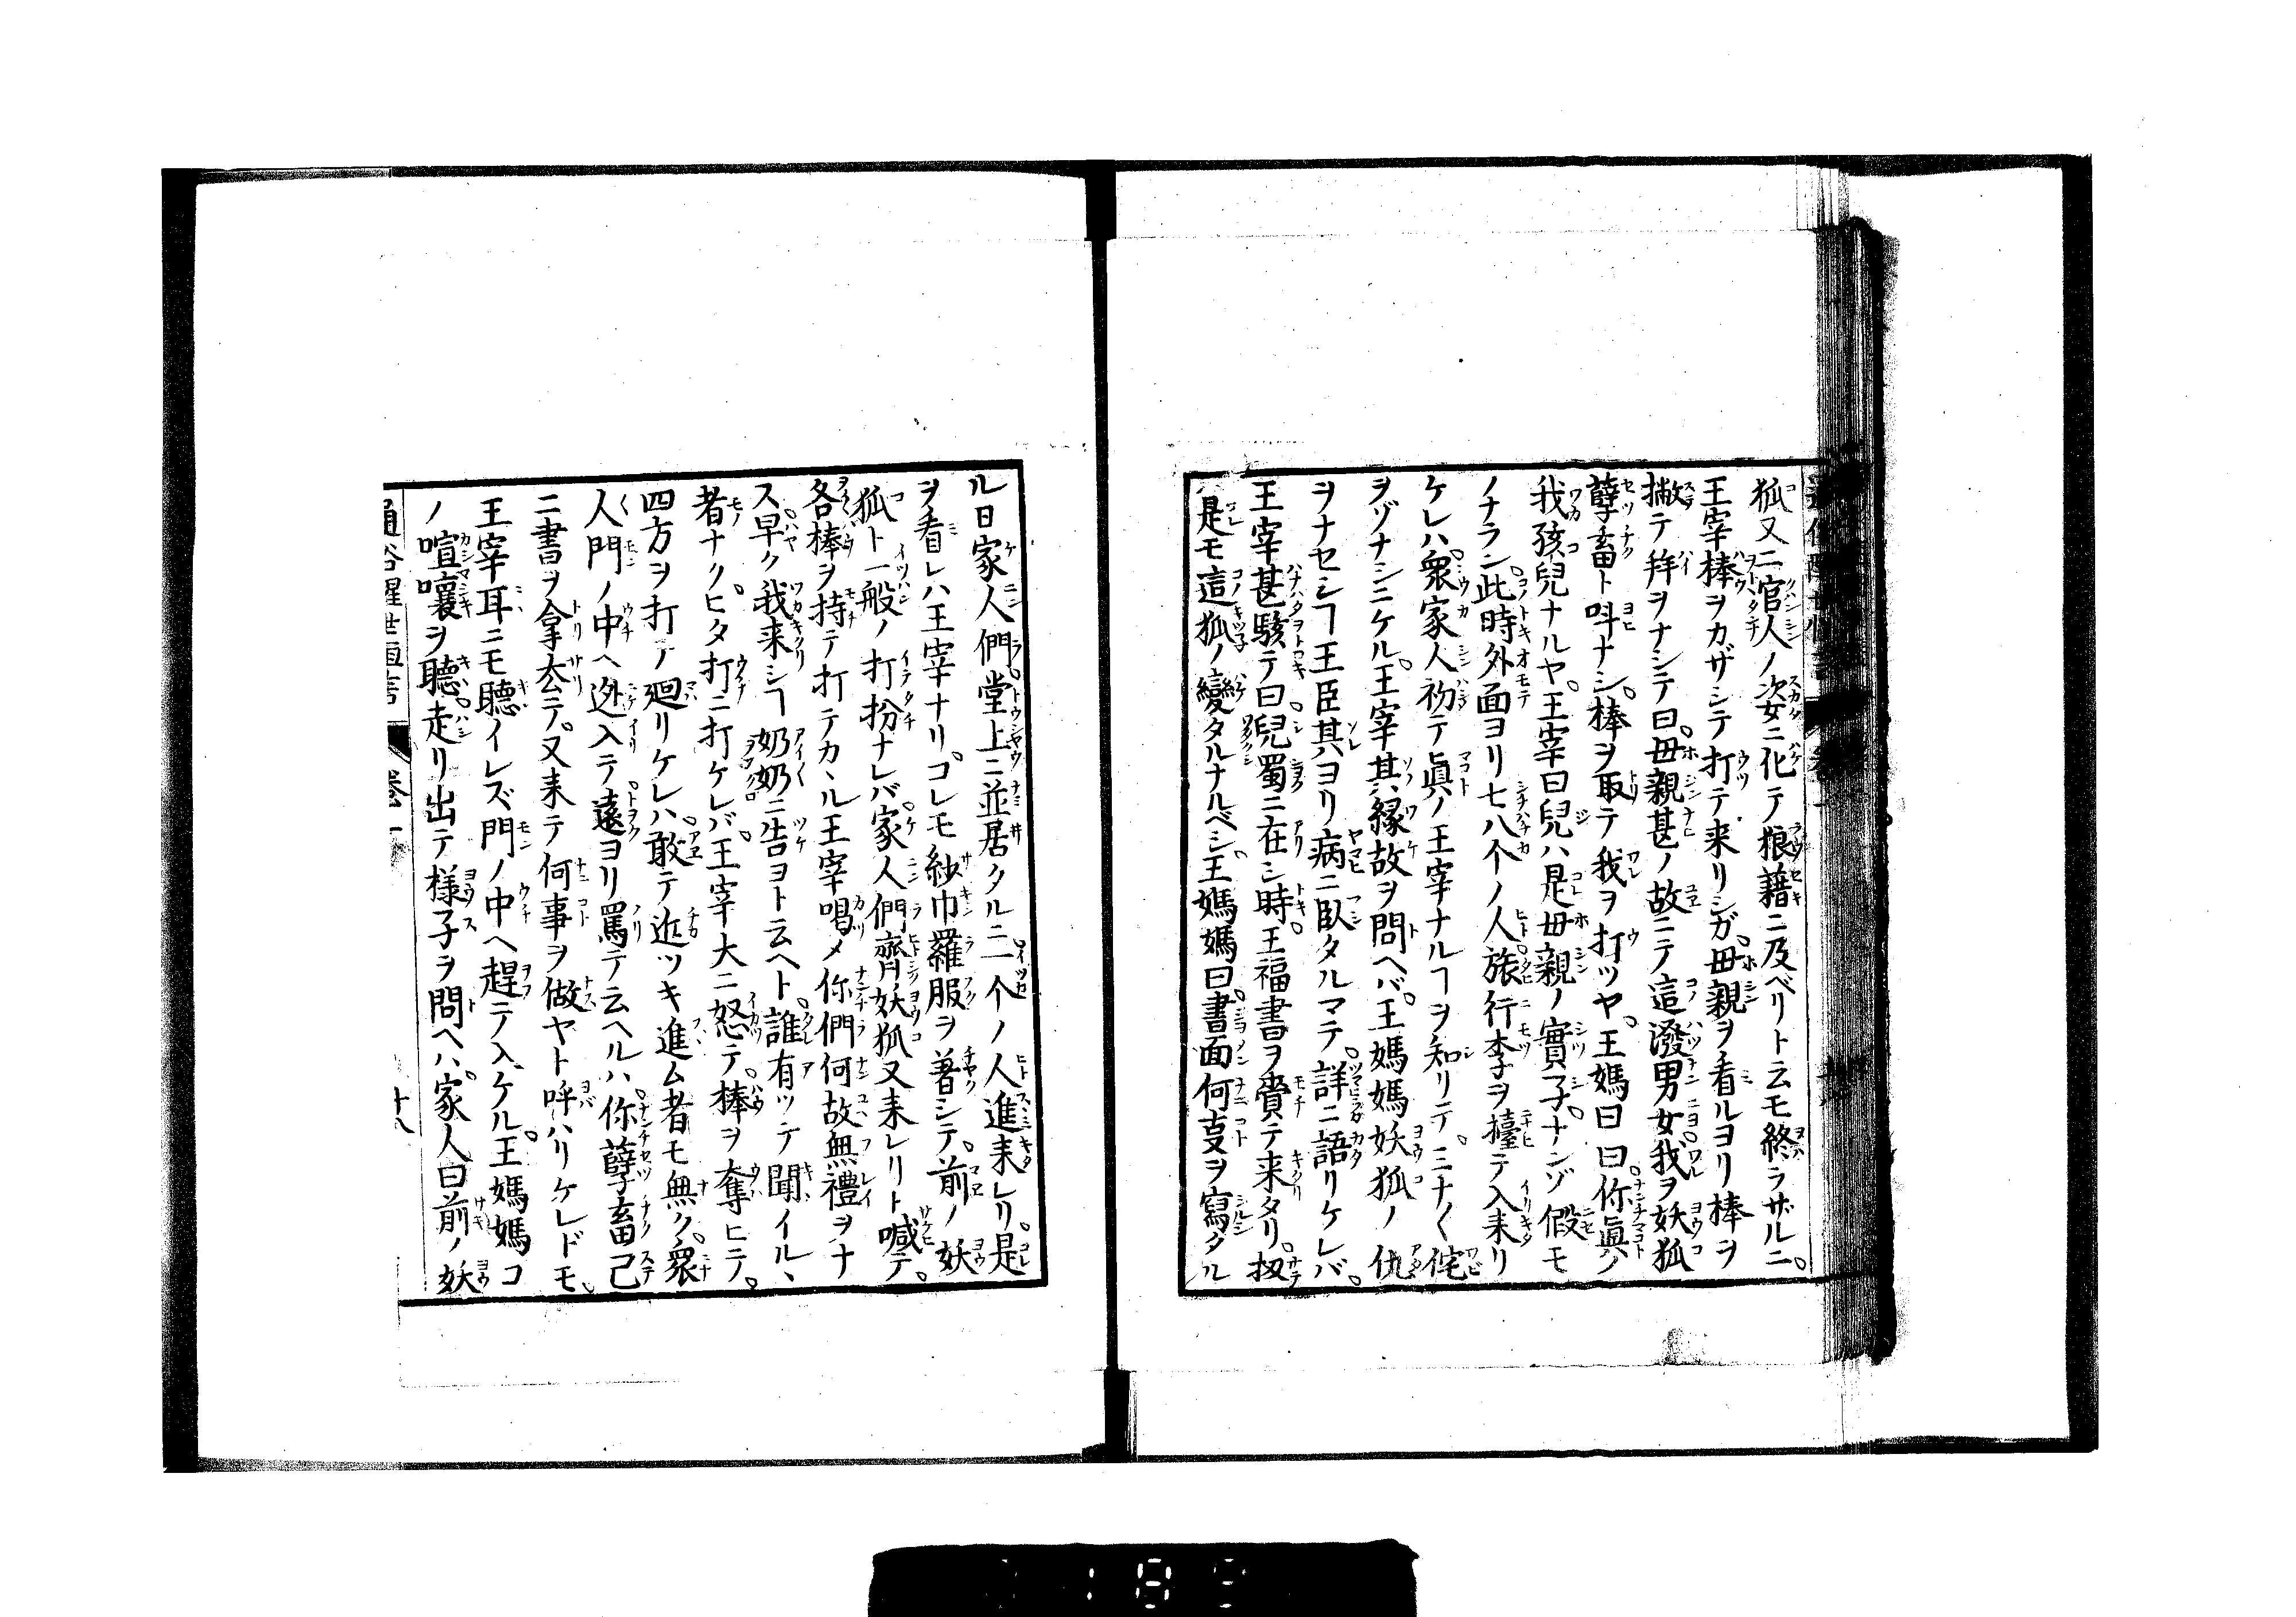 狐又二官人ノ姿ニ化テ狼藉ニ及ベリト云モ終ラザルニ。
王宰棒ヲカザシテ打テ来リシガ。毋親ヲ看ルヨリ棒ヲ
撇テ拜ヲナシテ曰。毋親甚ノ故ニテ這潑男女我ヲ妖狐
孽畜ト呌ナシ。棒ヲ取テ我ヲ打ツヤ。王媽曰曰。你眞ノ
我孩兒ナルヤ。王宰曰兒ハ是毋親ノ實子。ナンゾ假モ
ノナラン。此時外面ヨリ七八个ノ人。旅行李ヲ擡テ入来リ
ケレハ。衆家人初テ眞ノ王宰ナルヿヲ知リテ。ミナ〱侘
ヲゾナシニケル。王宰其縁故ヲ問ヘバ。王媽媽妖狐ノ仇
ヲナセシヿ王臣其ヨリ病ニ臥タルマテ。詳ニ語リケレバ。
王宰甚駭テ曰。兒蜀ニ在シ時。王福書ヲ賷テ来タリ。扠
ハ是モ這狐ノ變タルナルベシ。王媽媽曰。書面何叓ヲ寫タル
ル日家人們。堂上ニ並居タルニ。一个ノ人進来レリ。是
ヲ看レハ王宰ナリ。コレモ紗巾羅服ヲ著シテ。前ノ妖
狐ト一般ノ打扮ナレバ。家人們齊妖狐又来レリト喊テ。
各棒ヲ持テ打テカヽル王宰喝メ你們何故無禮ヲナ
ス。早ク我来シヿ奶奶ニ告ヨト云ヘト。誰有ツテ聞イルヽ
者ナク。ヒタ打ニ打ケレバ。王宰大ニ怒テ。棒ヲ奪ヒテ。
四方ヲ打テ廻リケレハ。敢テ近ツキ進ム者モ無ク。衆
人門ノ中ヘ迯入テ。遠ヨリ罵テ云ヘルハ。你孽畜已
ニ書ヲ拿去テ。又来テ何事ヲ做ヤト呼ハリケレドモ。
王宰耳ニモ聽イレズ。門ノ中ヘ趕テ入ケル。王媽媽コ
ノ喧嚷ヲ聽。走リ出テ様子ヲ問ヘハ。家人曰前ノ妖
通俗醒世恒言 卷一 十八